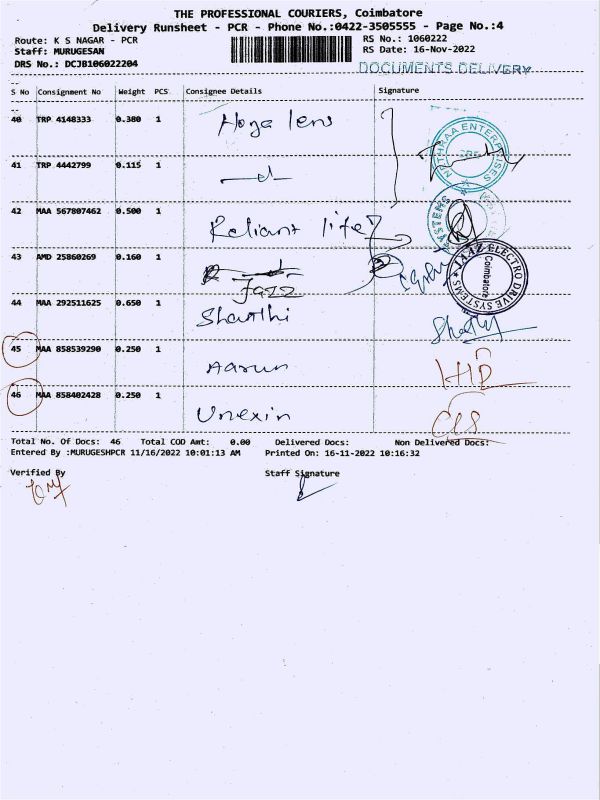 THE PROFESSIONAL COURIERS, Coimbatore
Delivery Runsheet - PCR - Phone No.:0422-3505555 - Page No.:4
Route: K S NAGAR - PCR
RS No.: 1060222
Staff: MURUGESAN
RS Date: 16-Nov-2022
DRS No.: DCJB106022204
DOCUMENTS DELIVERY
S No Consignment No Weight PCS Consignee Details Signature
40 TRP 4148333 0.380 1 Hoya lens
NETHRAA ENTERPRISES
CBE
41 TRP 4442799 0.115 1
42 MAA 567807462 0.500 1 Reliant life
SYSTEMS
43 AMD 25860269 0.160 1
Jazz
JAAZ ELECTRO DRIVE SYSTEMS
Coimbatore
44 MAA 292511625 0.650 1 Shanthi
45 MAA 858539290 0.250 1 Aarun
46 MAA 858402428 0.250 1 Unexin
Total No. Of Docs: 46 Total COD Amt: 0.00 Delivered Docs: Non Delivered Docs:
Entered By :MURUGESHPCR 11/16/2022 10:01:13 AM Printed On: 16-11-2022 10:16:32
Verified By Staff Signature